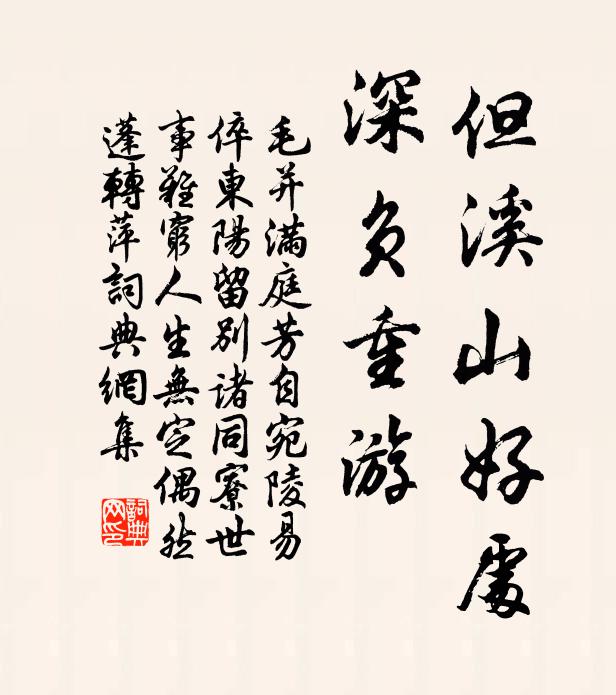 但溪山好處
深負重游
毛并滿庭芳自宛陵易
倅東陽留別諸同寮世
事難窮人生無定偶然
蓬轉萍詞典網集
詞典
网印